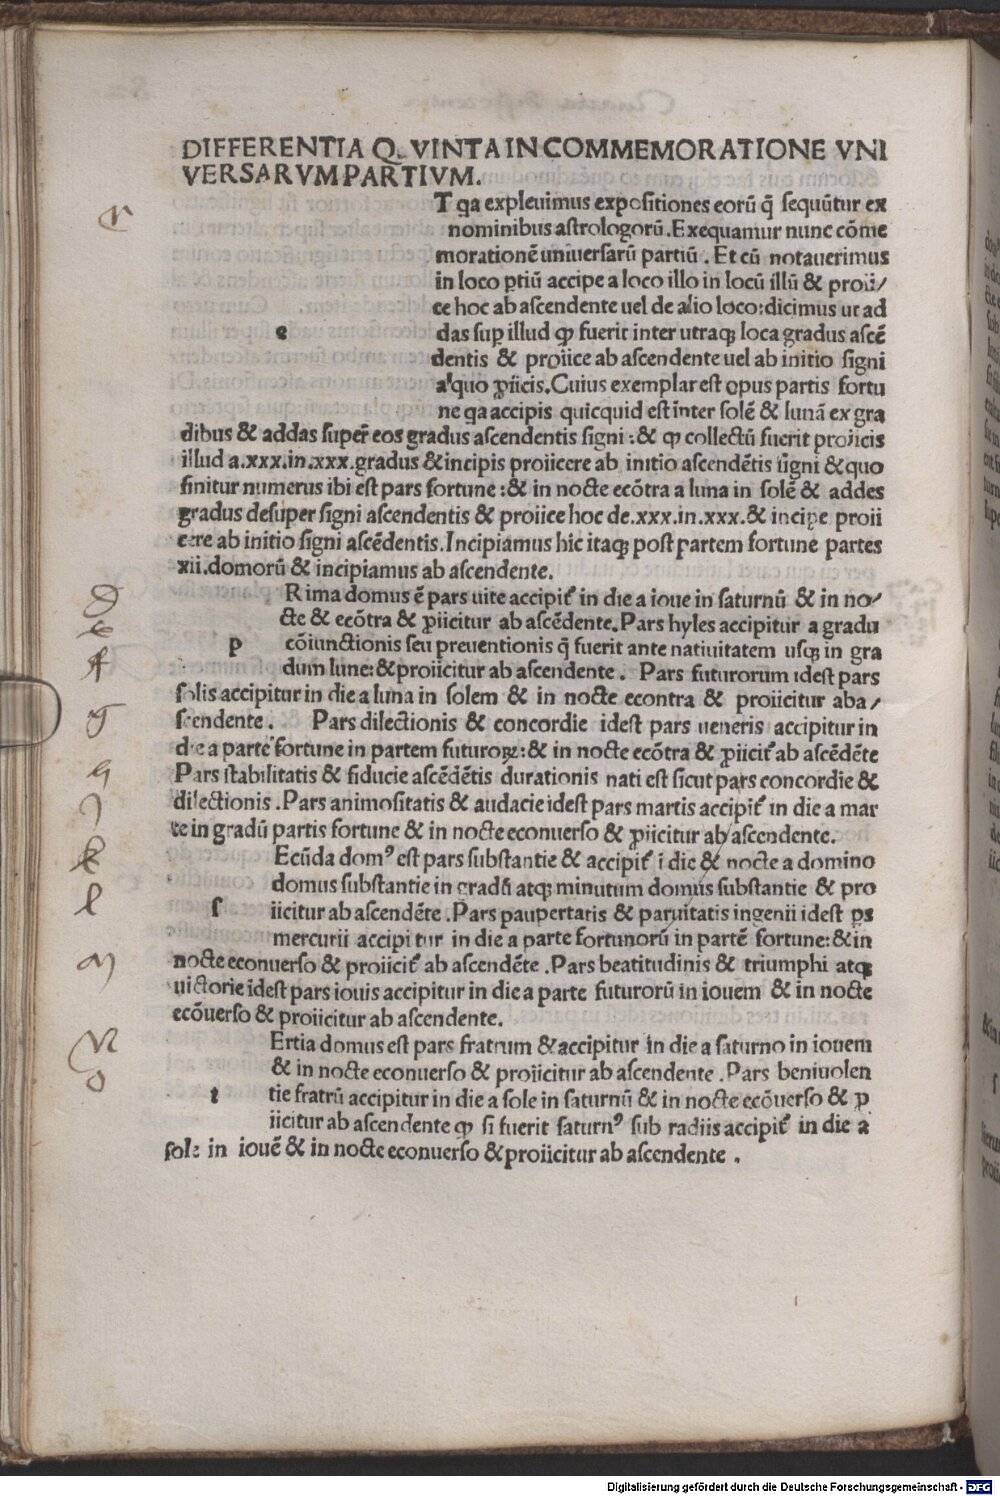 DIFFERENTIA Q. VINTA IN COMMEMORATIONE VNI
VERSARVM PARTIVM.
T qa expleuimus expositiones eorũ q̃ sequũtur ex
nominibus astrologorũ. Exequamur nunc cõme
morationẽ uniuersarũ partiũ. Et cũ notauerimus
in loco ꝑtiũ accipe a loco illo in locũ illũ & proii/
ce hoc ab ascendente uel de alio loco: dicimus ut ad
e
das suꝑ illud ꝙ fuerit inter utraqꝫ loca gradus ascẽ
dentis & proiice ab ascendente uel ab initio signi
a quo ꝓiicis. Cuius exemplar est opus partis fortu
ne qa accipis quicquid est inter solẽ & lunã ex gra
dibus & addas super̃ eos gradus ascendentis signi: & ꝙ collectũ fuerit proiicis
illud a .xxx. in .xxx. gradus & incipis proiicere ab initio ascendẽtis signi & quo
finitur numerus ibi est pars fortune: & in nocte ecõtra a luna in solẽ & addes
gradus desuper signi ascendentis & proiice hoc de .xxx. in .xxx. & incipe proii
cere ab initio signi ascẽdentis. Incipiamus hic itaqꝫ post partem fortune partes
xii. domorũ & incipiamus ab ascendente.
Rima domus ẽ pars uite accipit̃ in die a ioue in saturnũ & in no/
cte & ecõtra & ꝓiicitur ab ascẽdente. Pars hyles accipitur a gradu
p
cõiunctionis seu preuentionis q̃ fuerit ante natiuitatem usqꝫ in gra
dum lune: & proiicitur ab ascendente. Pars futurorum idest pars
solis accipitur in die a luna in solem & in nocte econtra & proiicitur ab a/
scendente. Pars dilectionis & concordie idest pars ueneris accipitur in
die a parte fortune in partem futuroꝝ: & in nocte ecõtra & ꝓiicit̃ ab ascẽdẽte
Pars stabilitatis & fiducie ascẽdẽtis durationis nati est sicut pars concordie &
dilectionis. Pars animositatis & audacie idest pars martis accipit̃ in die a mar
te in gradũ partis fortune & in nocte econuerso & ꝓiicitur ab ascendente.
Ecũda domꝰ est pars substantie & accipit̃ ĩ die & nocte a domino
domus substantie in gradũ atqꝫ minutum domus substantie & pro
s
iicitur ab ascendẽte. Pars paupertatis & paruitatis ingenii idest ꝑs
mercurii accipitur in die a parte fortunorũ in partẽ fortune: & in
nocte econuerso & proiicit̃ ab ascendẽte. Pars beatitudinis & triumphi atqꝫ
uictorie idest pars iouis accipitur in die a parte futurorũ in iouem & in nocte
ecõuerso & proiicitur ab ascendente.
Ertia domus est pars fratrum & accipitur in die a saturno in iouem
& in nocte econuerso & proiicitur ab ascendente. Pars beniuolen
t
tie fratrũ accipitur in die a sole in saturnũ & in nocte ecõuerso & ꝓ
iicitur ab ascendente ꝙ si fuerit saturnꝰ sub radiis accipit̃ in die a
sole in iouẽ & in nocte econuerso & proiicitur ab ascendente.
Digitalisierung gefördert durch die Deutsche Forschungsgemeinschaft - DFG